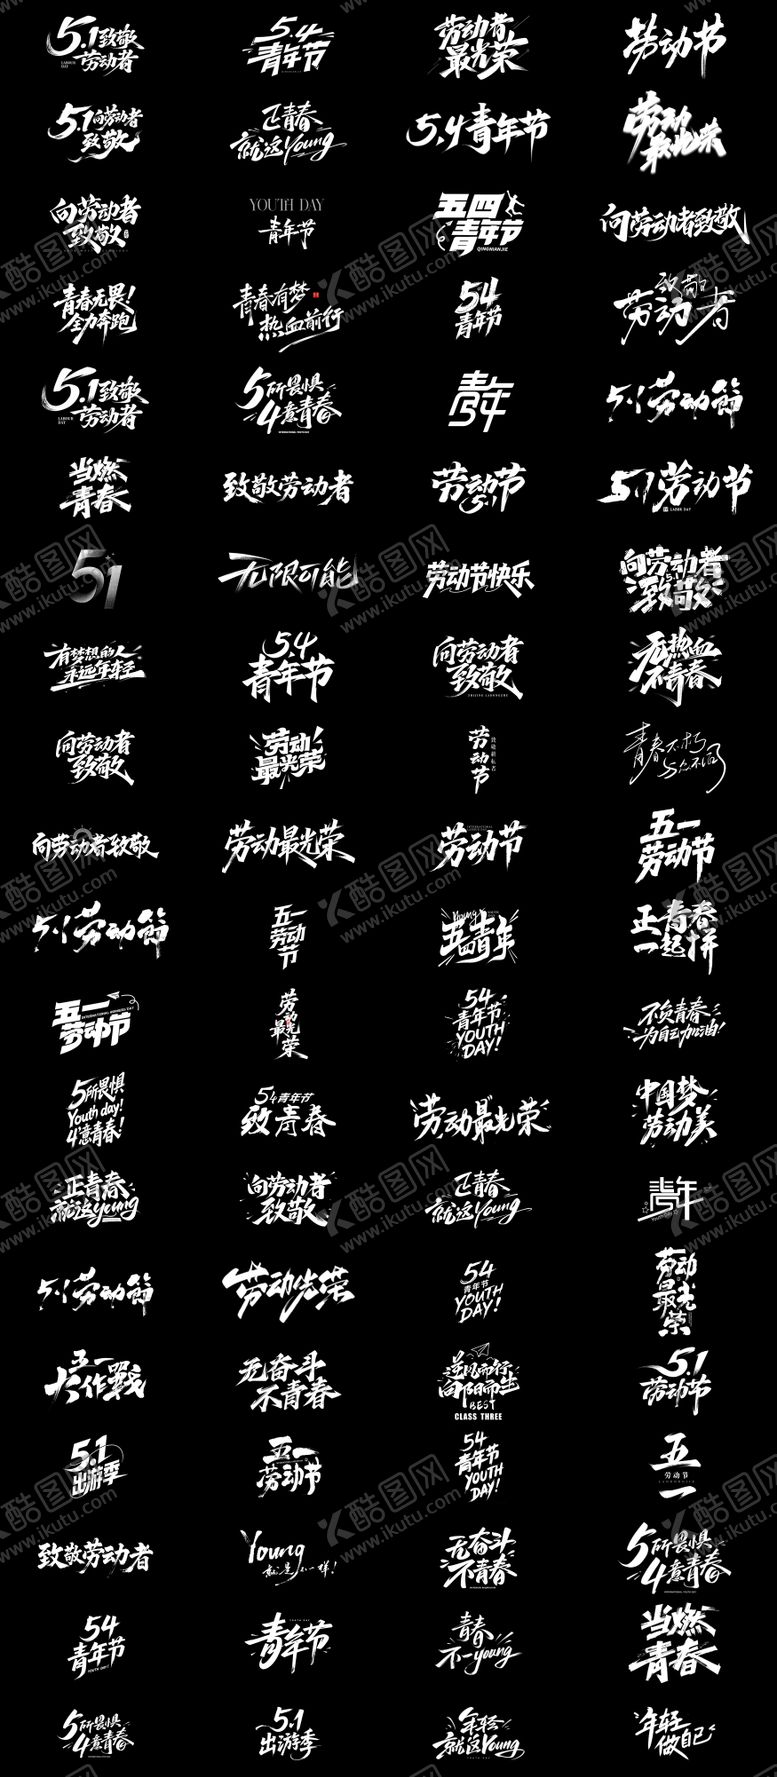 5.1致敬
劳动者
LABOUR
DAY
5.4
青年节
劳动者
最光荣
劳动节
5.1向劳动者
致敬
正青春
就这Young
5.4青年节
劳动
最光荣
向劳动者
致敬
YOUTH DAY
青年节
五四
青年节
QINGNIANJIE
向劳动者致敬
青春无畏!
全力奔跑
青春有梦
热血前行
54
青年节
致敬
劳动者
5.1致敬
劳动者
LABOUR
DAY
5所畏惧
4意青春
青年
5.1劳动節
当燃
青春
致敬劳动者
劳动节
5.1
5.1劳动节
LABOR DAY
51
无限可能
劳动节快乐
向劳动者
致敬
有梦想的人
永远年轻
5.4
青年节
向劳动者
致敬
无热血
不青春
向劳动者
致敬
劳动
最光荣
劳动节
青春不朽
向劳动者致敬
劳动最光荣
劳动节
五一
劳动节
5.1劳动節
五一
劳动
节
Young
五四青年
正青春
一起拼
五一
劳动节
劳动
最光
荣
54
青年节
YOUTH
DAY!
不负青春
为自己加油!
5所畏惧
Youth day!
4意青春!
54青年节
致青春
劳动最光荣
中国梦
劳动美
正青春
就这young
向劳动者
致敬
正青春
就这Young
青年
5.1劳动節
劳动光荣
54
青年节
YOUTH
DAY!
劳动
最光
荣
五一
大作戰
无奋斗
不青春
逆风而行
向阳而生
BEST
CLASS THREE
5.1
劳动节
5.1
出游季
五一
劳动节
54
青年节
YOUTH
DAY!
五
劳动节
一
致敬劳动者
Young
就是不一样!
无奋斗
不青春
5所畏惧
4意青春
54
青年节
青年节
青春
不一young
当燃
青春
5所畏惧
4意青春
5.1
出游季
年轻
就这Young
年轻
做自己
酷图网
www.ikutu.com